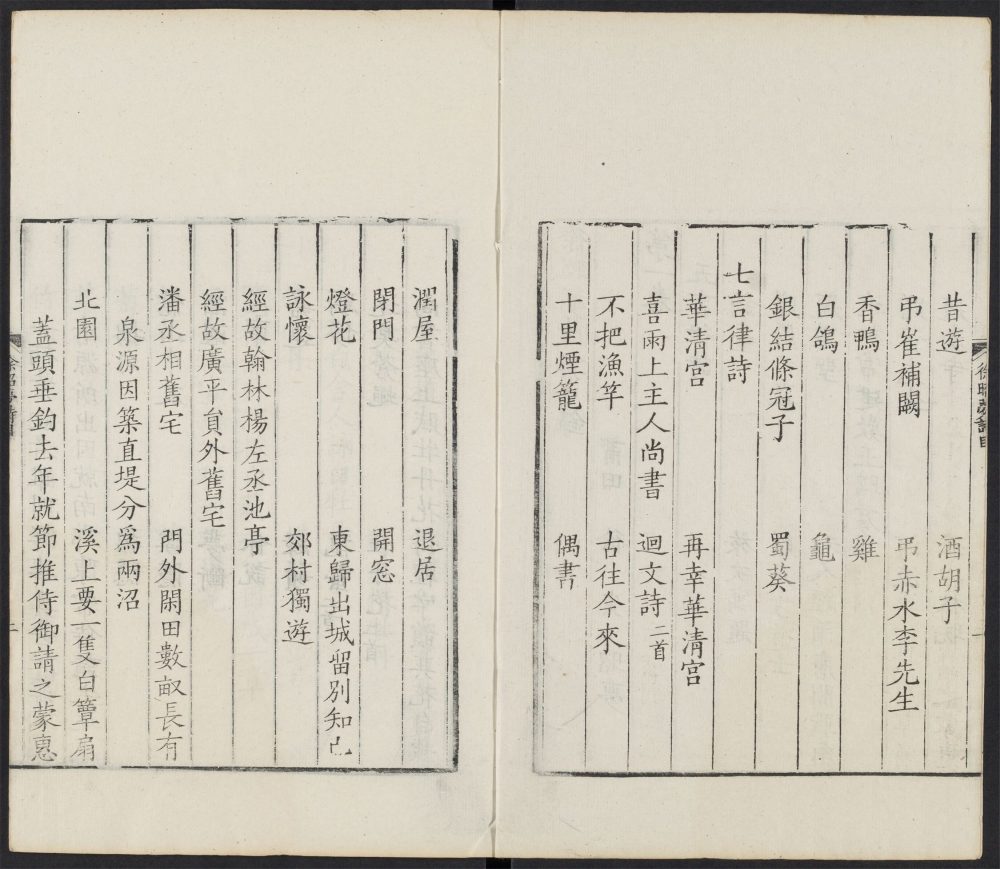 徐昭夢詩目
昔遊　酒胡子
弔崔補闕　弔赤水李先生
香鴨　雞
白鴿　龜
銀結條冠子　蜀葵
七言律詩
華清宮　再幸華清宮
喜雨上主人尚書　迴文詩二首
不把漁竿　古往今來
十里煙籠　偶書
潤屋　退居
閉門　開窓
燈花　東歸出城留別知己
詠懷　郊村獨遊
經故翰林楊左丞池亭
經故廣平員外舊宅
潘丞相舊宅　門外閑田數畝長有
泉源因築直堤分爲兩沼
北園　溪上要一隻白簟扇
蓋頭垂釣去年就節推侍御請之蒙惠
二